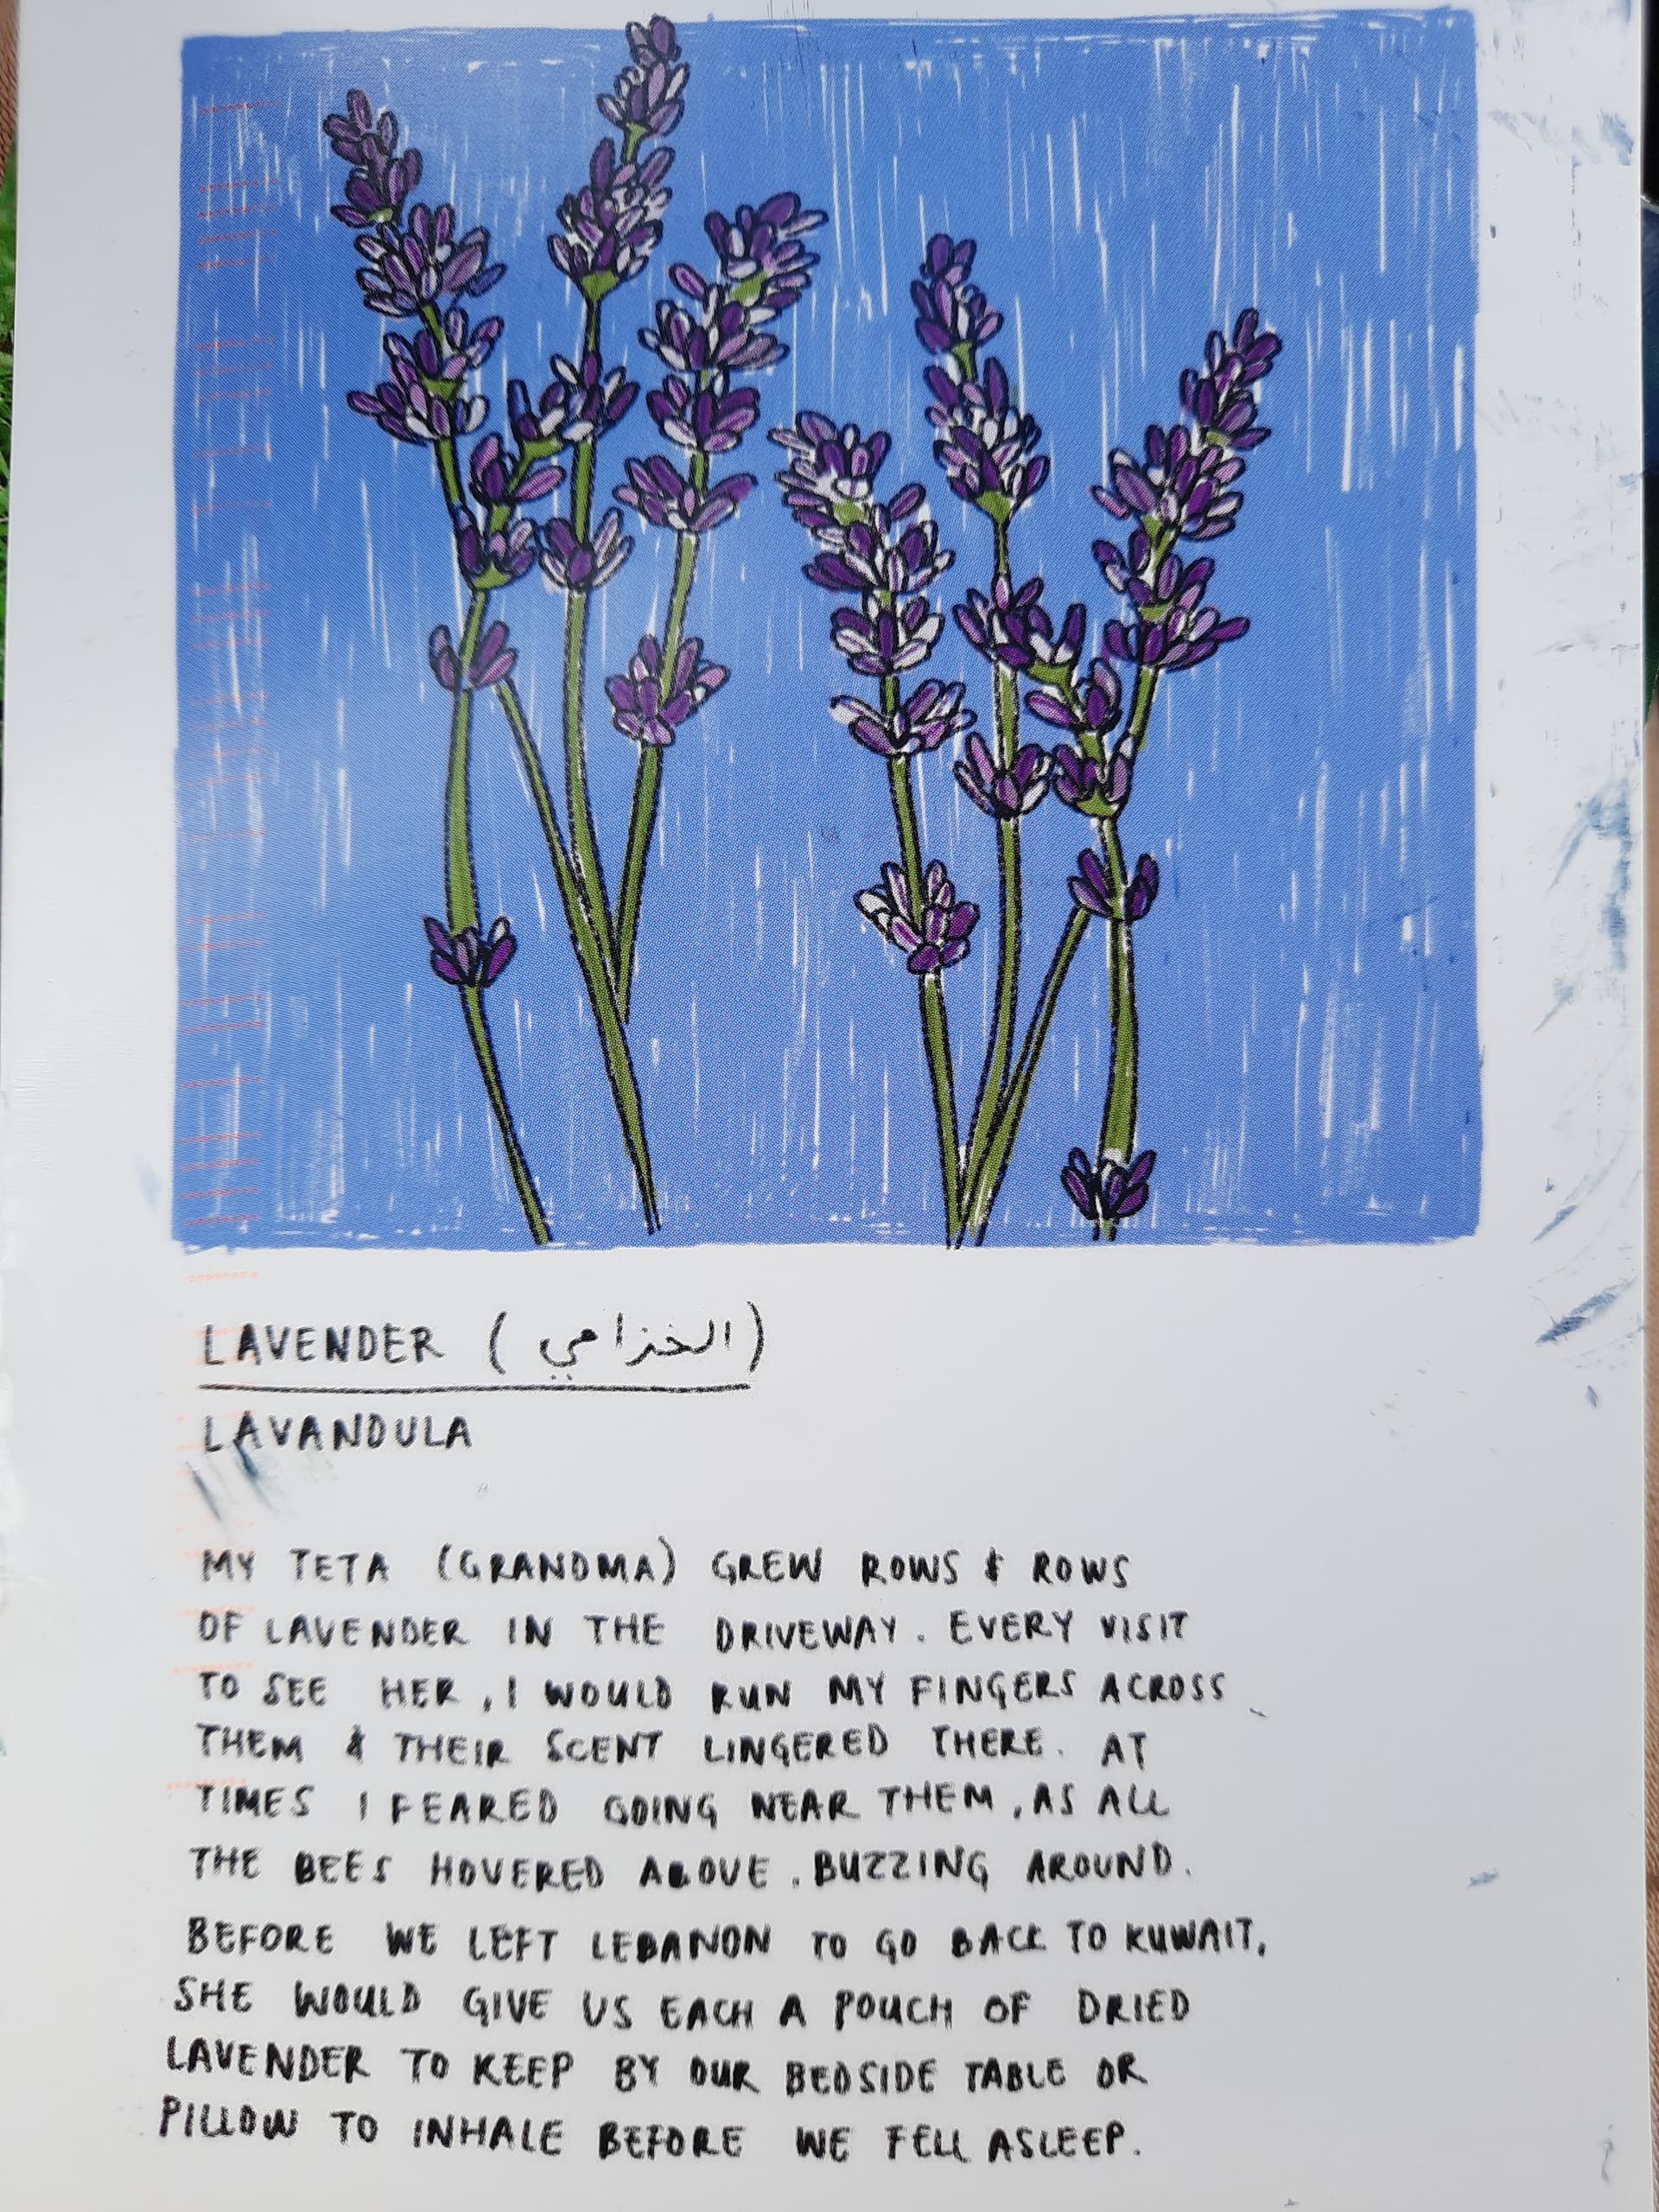 LAVENDER (الخزامي)
LAVANDULA
MY TETA (GRANDMA) GREW ROWS & ROWS
OF LAVENDER IN THE DRIVEWAY. EVERY VISIT
TO SEE HER, I WOULD RUN MY FINGERS ACROSS
THEM & THEIR SCENT LINGERED THERE. AT
TIMES I FEARED GOING NEAR THEM, AS ALL
THE BEES HOVERED ABOVE, BUZZING AROUND.
BEFORE WE LEFT LEBANON TO GO BACK TO KUWAIT,
SHE WOULD GIVE US EACH A POUCH OF DRIED
LAVENDER TO KEEP BY OUR BEDSIDE TABLE OR
PILLOW TO INHALE BEFORE WE FELL ASLEEP.